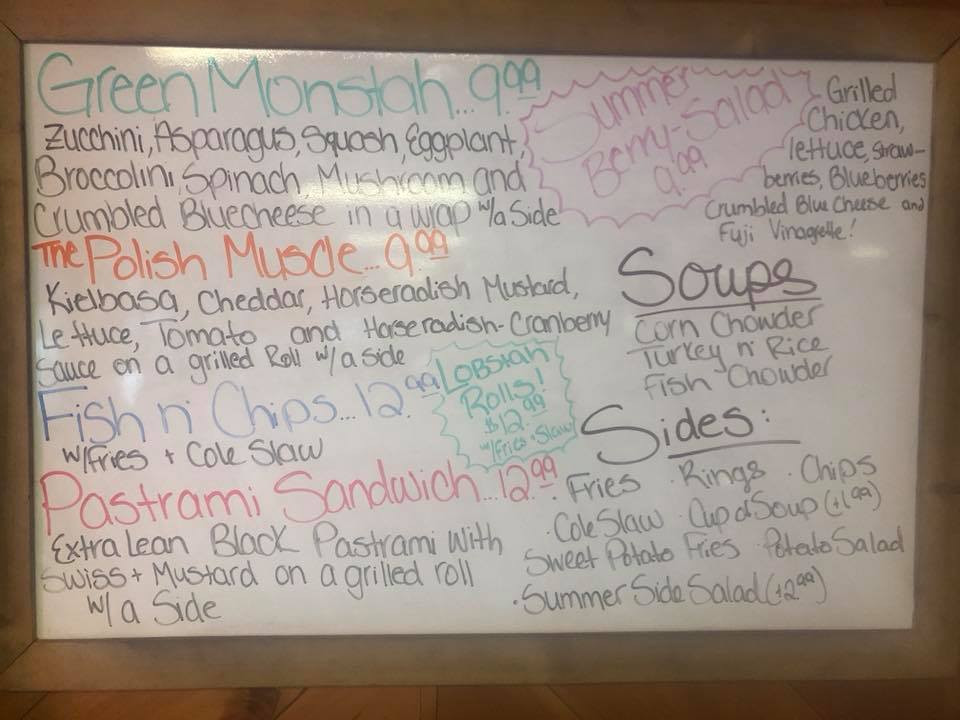 Green Monstah... 9.99
Zucchini, Asparagus, Squash, Eggplant,
Broccolini, Spinach, Mushroom and
Crumbled Bluecheese in a wrap w/a Side
The Polish Muscle... 9.99
Kielbasa, Cheddar, Horseradish Mustard,
Lettuce, Tomato and Horseradish-Cranberry
Sauce on a grilled Roll w/a side
Fish n' Chips... 12.99
w/Fries + Cole Slaw
Pastrami Sandwich... 12.99
Extra Lean Black Pastrami With
Swiss + Mustard on a grilled roll
w/a Side
Lobstah
Rolls!
$12.99
w/Fries + Slaw
Summer
Berry-Salad
9.99
Grilled
Chicken,
lettuce, straw-
berries, Blueberries
Crumbled Blue Cheese and
Fuji Vinagrette!
Soups
Corn Chowder
Turkey n' Rice
Fish Chowder
Sides:
· Fries · Rings · Chips
· Cole Slaw · Cup of Soup (+1.99)
Sweet Potato Fries · Potato Salad
· Summer Side Salad (+2.99)